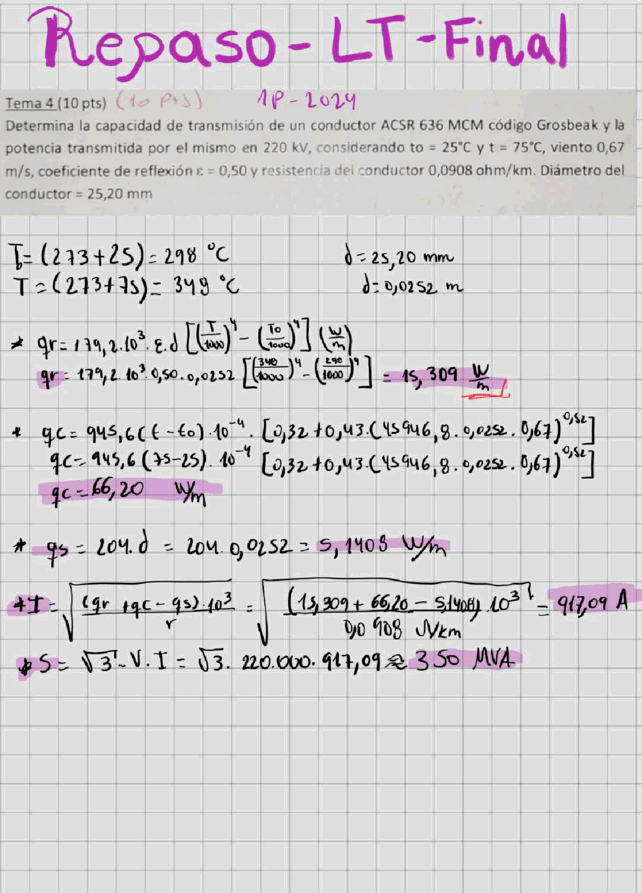 Repaso - LT - Final
Tema 4 (10 pts) (10 Pts) 1P - 2024
Determina la capacidad de transmisión de un conductor ACSR 636 MCM código Grosbeak y la
potencia transmitida por el mismo en 220 kV, considerando to = 25°C y t = 75°C, viento 0,67
m/s, coeficiente de reflexión ε = 0,50 y resistencia del conductor 0,0908 ohm/km. Diámetro del
conductor = 25,20 mm
To = (273+25) = 298 °C d = 25,20 mm
T = (273+75) = 348 °C d = 0,0252 m
* qr = 179,2.10³. ε.d [(T/1000)⁴ - (To/1000)⁴] (W/m)
qr = 179,2.10³.0,50.0,0252 [(348/1000)⁴ - (298/1000)⁴] = 15,309 W/m
* qc = 945,6(t - to).10⁻⁴. [0,32 + 0,43.(45946,8.0,0252.0,67)^0,52]
qc = 945,6(75-25).10⁻⁴ [0,32 + 0,43.(45946,8.0,0252.0,67)^0,52]
qc = 66,20 W/m
* qs = 204.d = 204.0,0252 = 5,1408 W/m
* I = √((qr + qc - qs).10³/r) = √((15,309 + 66,20 - 5,1408).10³/0,0908 Ω/km) = 917,09 A
* S = √3.V.I = √3. 220.000.917,09 ≈ 350 MVA